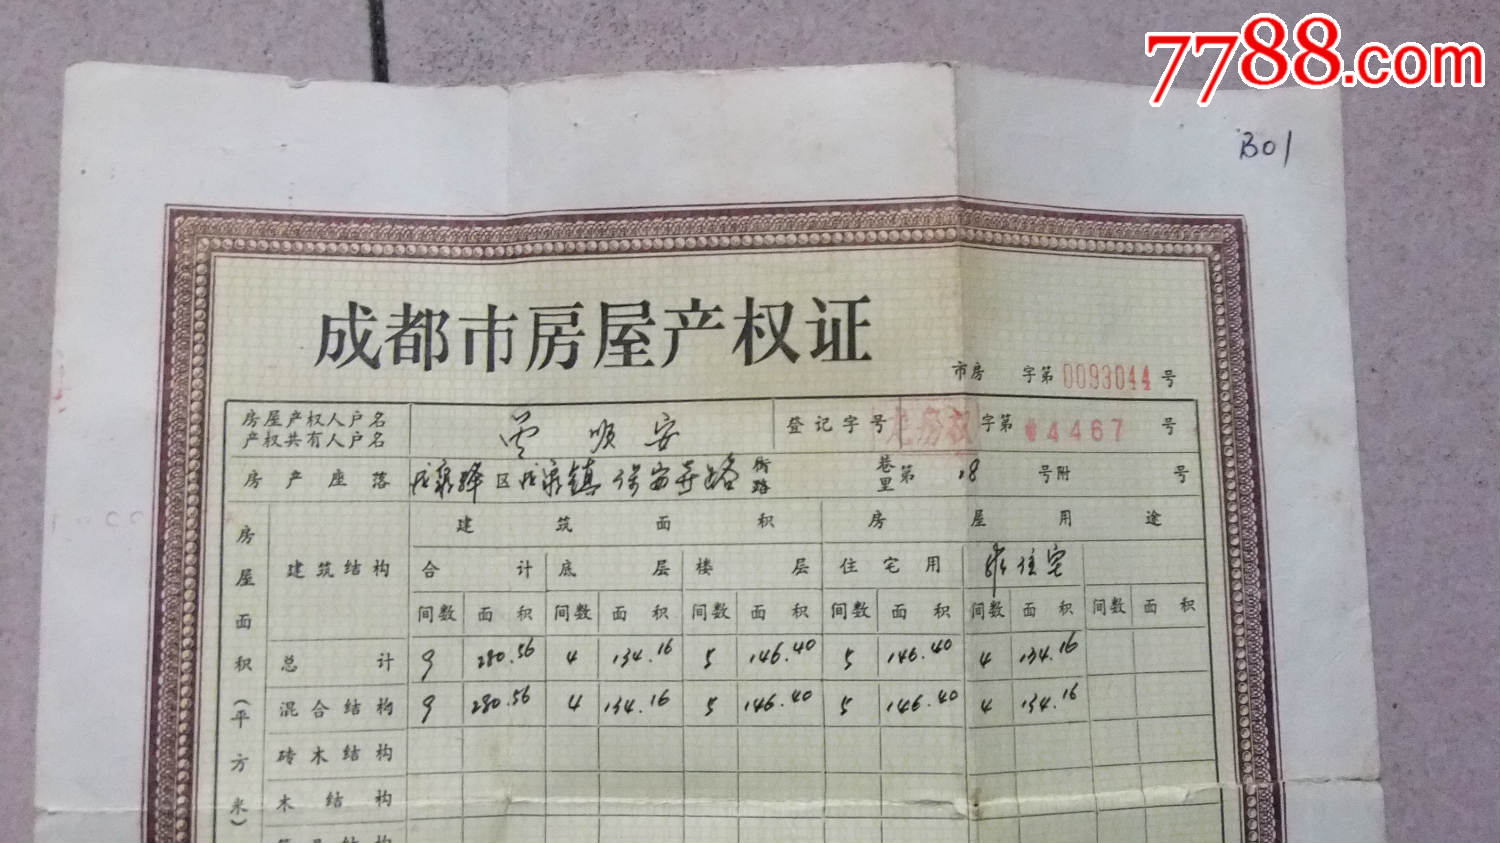 7788.com
B01
成都市房屋产权证
市房 字第 0093044 号
房屋产权人户名
产权共有人户名
顺安
登记字号 龙房权 字第 4467 号
房产座落
区 泉镇 保安 路 街路 巷里 第 18 号附 号
房屋面积(平方米)
建筑结构
建筑面积 房屋用途
合计 底层 楼层 住宅用 非住宅
间数 面积 间数 面积 间数 面积 间数 面积 间数 面积 间数 面积
总计 9 280.56 4 134.16 5 146.40 5 146.40 4 134.16
混合结构 9 280.56 4 134.16 5 146.40 5 146.40 4 134.16
砖木结构
木结构